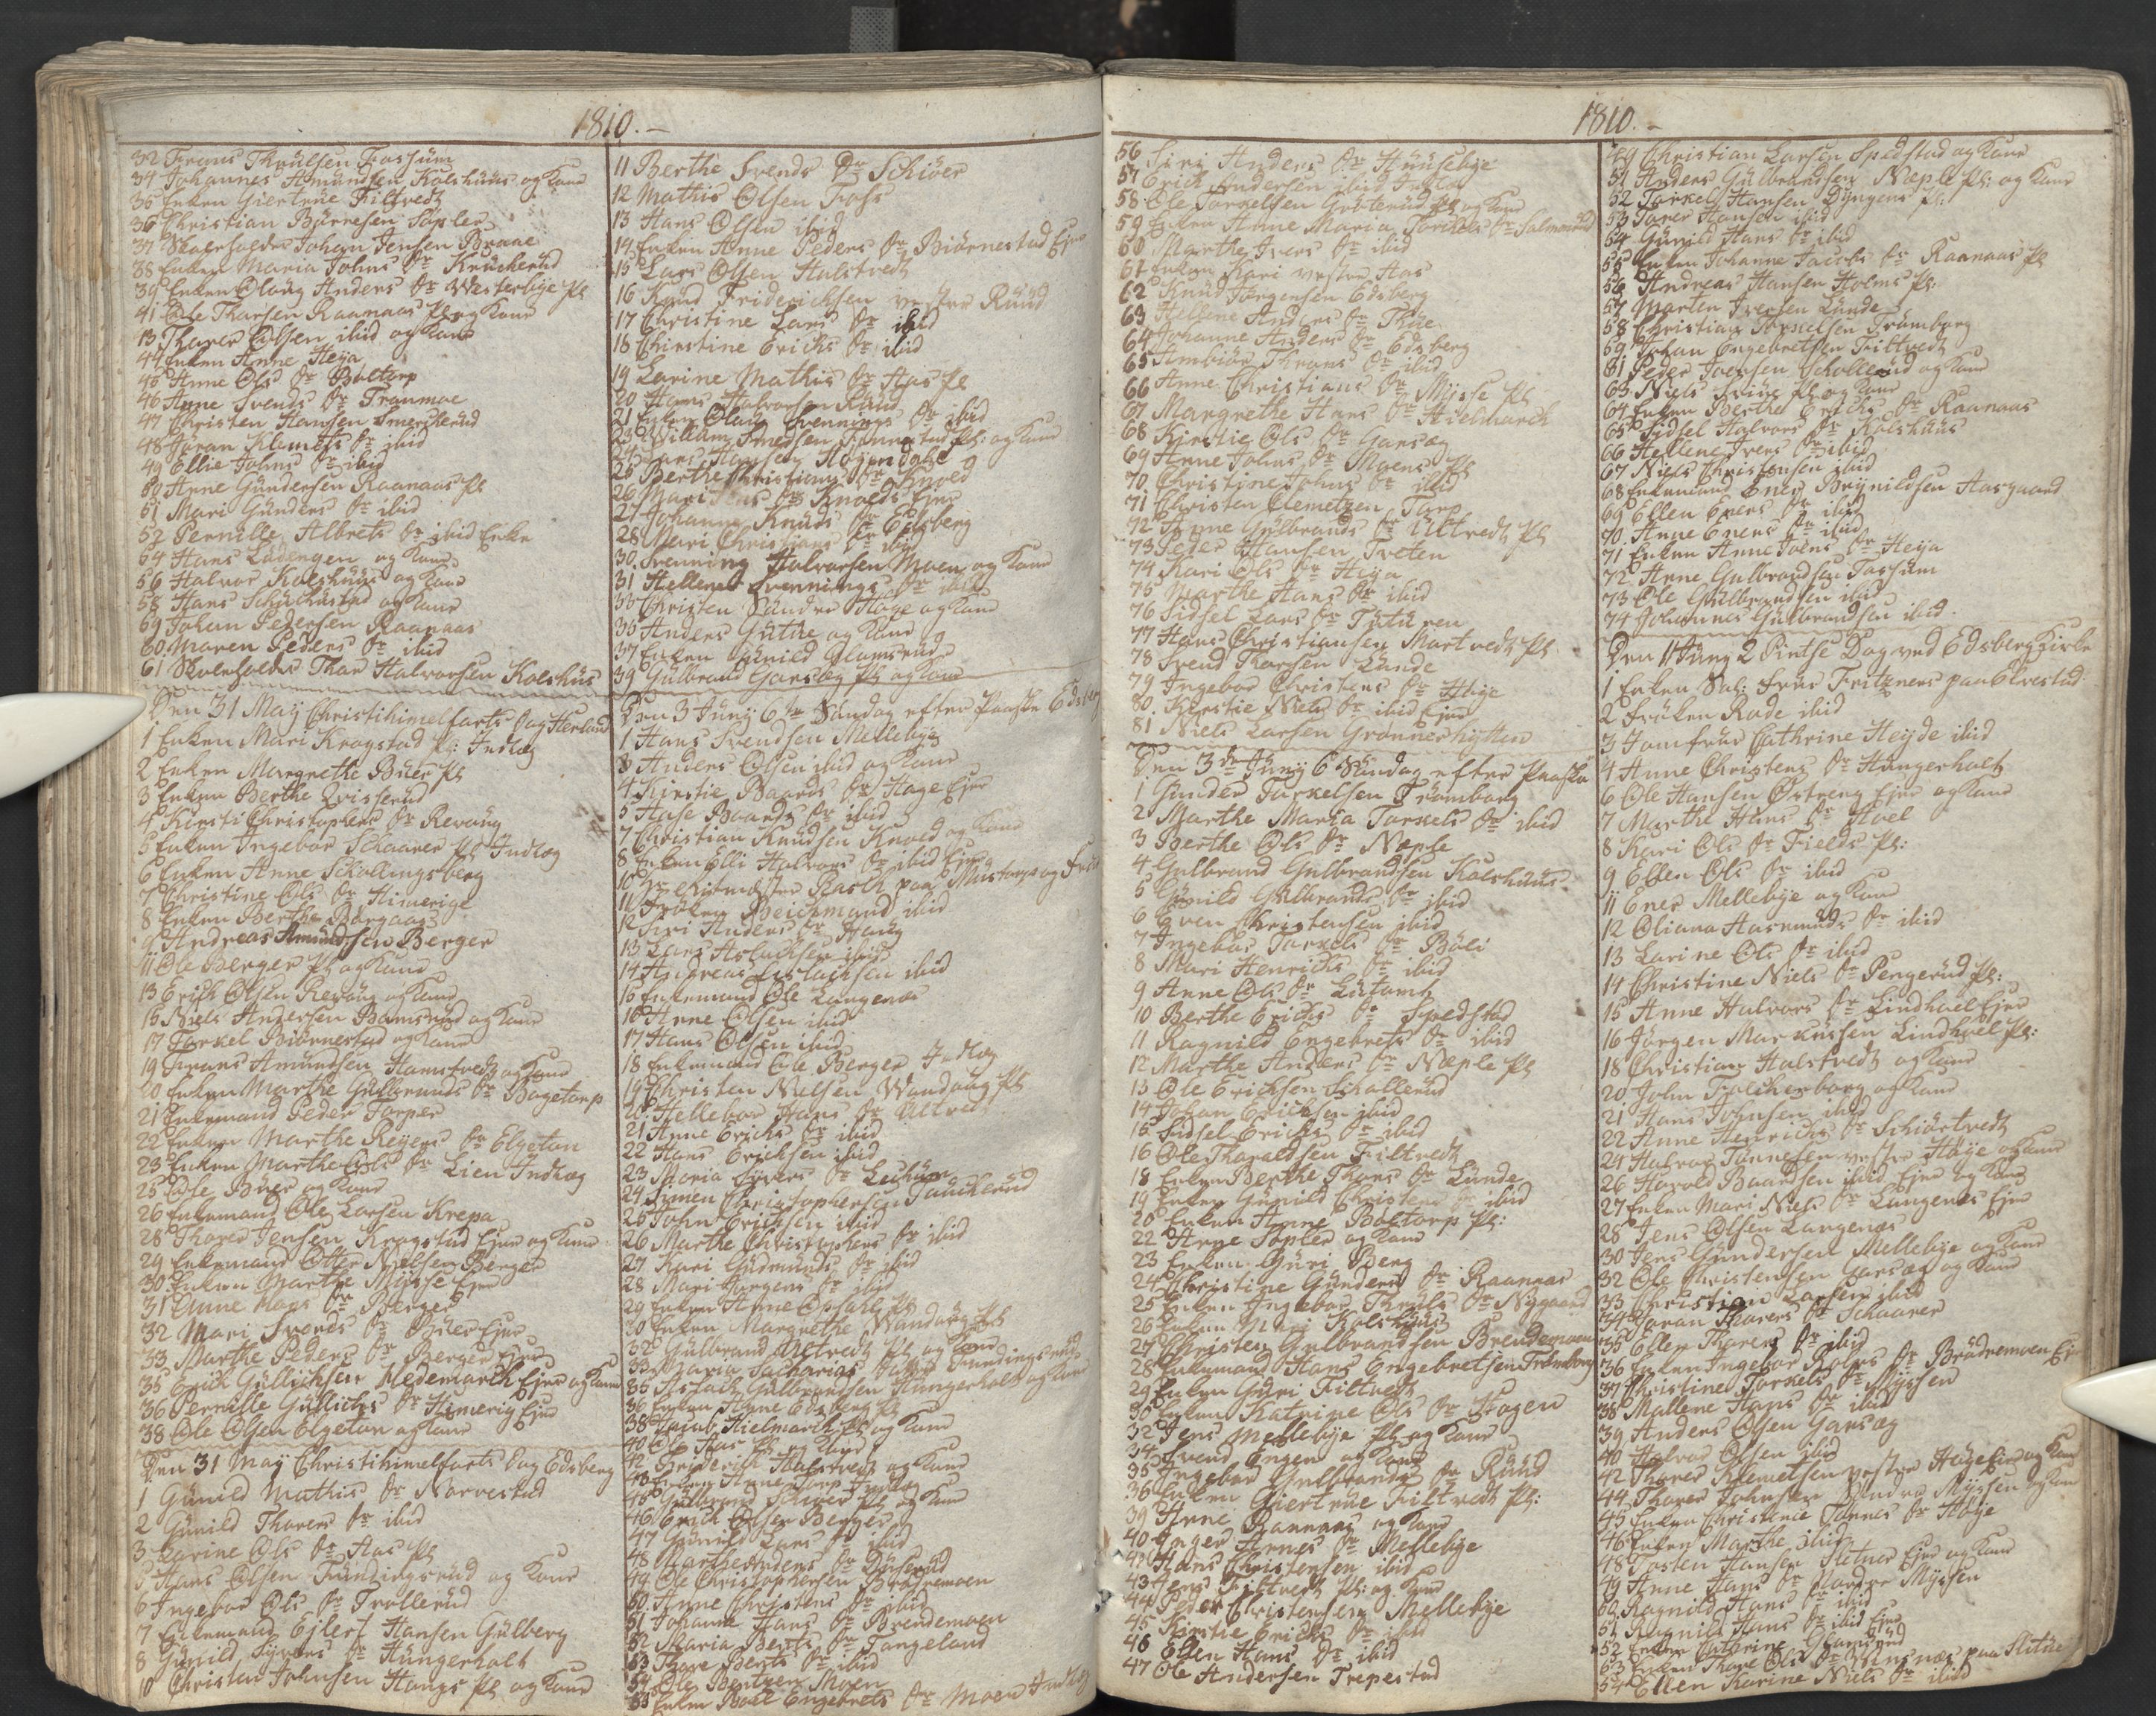 1810.-
32 Frans Thrulsen Fossum
34 Johannes Amundsen Kolshuus og Kone
35 Enken Giertrue Filtvedt
36 Christian Börresen Sopler
37 Skoeholder Johan Jensen Braae
38 Enken Maria Johns Dr Kruckerud
39 Enken Oloug Anders Dr Westerbye Pl
41 Ole Thorsen Raanaas Pl og Kone
13 Thorer Olsen ibid og Kone
44 Enken Anne Heya
45 Anne Ols Dr Boltorp
46 Anne Svends Dr Tranmoe
47 Christen Hansen Smerckerud
48 Joran Klemets Dr ibid
49 Ellie Johns Dr ibid
50 Anne Gundersen Raanaas Pl
51 Mari Gunders Dr ibid
52 Pernille Albrets Dr ibid Enke
54 Hans Ladengen og Kone
56 Halvor Kolshuus og Kone
58 Hans Schuckustad og Kone
59 Johan Pedersen Raanaas
60 Maren Peders Dr ibid
61 Skoeholder Thor Halvorsen Kolshus
Den 31 May Christi himelfarts Dag Herland
1 Enken Mari Kragstad Pl: Indlæg
2 Enken Margrethe Büer Pl
3 Enken Berthe Qvisserud
4 Kirsti Christophers Dr Revoug
5 Enken Ingebor Schaarer Pl Indlæg
6 Enken Anne Schollingsberg
7 Christine Ols Dr Himerige
8 Enken Berthe Borgaas
9 Andreas Amundsen Berger
11 Ole Berger Pl og Kone
13 Erich Olsen Revoug og Kone
15 Niels Andersen Bamsrud og Kone
17 Torkel Biörnestad og Kone
19 Frans Amundsen Homstvedt og Kone
20 Enken Marthe Gulbrands Dr Bagetorp
21 Enkemand Peder Torper
22 Enken Marthe Reyers Dr Elgetun
23 Enken Marthe Ols Dr Lien Indlæg
25 Ole Büer og Kone
26 Enkemand Ole Larsen Krepa
28 Thorer Jensen Kragstad Ejer og Kone
29 Enkemand Otter Nielsen Berger
30 Enken Marthe Mysse Ejer
31 Anne Hans Dr Berger
32 Mari Svends Dr Büer Ejer
33 Marthe Peders Dr Berger Ejer
35 Erick Gullichsen Hedemarck Ejer og Kone
36 Pernille Gullichs Dr Himerig Ejer
38 Ole Olsen Elgetun og Kone
Den 31 May Christi himelfarts Dag Edsberg
1 Gunild Mathis Dr Narvestad
2 Gunild Thorers Dr ibid
3 Karine Ols Dr Aas Pl
5 Hans Olsen Fundingsrud og Kone
6 Ingebor Ols Dr Trollerud
7 Enkemand Ejlert Hansen Gulberg
8 Gunild Syvers Dr Hungerholt
10 Christen Johnsen Haugs Pl og Kone
11 Berthe Svends Dr Schiöer
12 Mathis Olsen Foss
13 Hans Olsen ibid
14 Enken Anne Peders Dr Biörnestad Ejer
15 Lars Olsen Halstvedt
16 Knud Friderichsen vestre Ruud
17 Christine Lars Dr ibid
18 Christine Erichs Dr ibid
19 Karine Mathis Dr Aas Pl
20 Hans Halvorsen Ruud
21 Enken Oloug Svennings Dr ibid
23 Willum Smedsen Finnestad Pl: og Kone
24 Hans Hansen Högendahl
25 Berthe Christians Dr Knold
26 Mari Jens Dr Knolds Ejer
27 Johanne Knuds Dr Edsberg
28 Mari Christians Dr ibid
30 Svenning Halvorsen Moen og Kone
31 Hellene Svennings Dr ibid
33 Christen Söndre Hoye og Kone
35 Anders Guthe og Kone
37 Enken Gunild Glomsrud
39 Gulbrand Garseg Pl og Kone
Den 3 Juny 6te Sondag efter Paaske Edsberg
1 Hans Svendsen Mellebye
3 Anders Olsen ibid og Kone
4 Kirstie Baards Dr Hage Ejer
5 Aase Baards Dr ibid
7 Christian Knudsen Knold og Kone
8 Enken Elli Halvors Dr ibid Ejer
10 Hr Ritmester Rasch paa Mustorp og Frue
11 Fröken Beichmand ibid
12 Siri Anders Dr Haug
13 Lars Aslachsen ibid
14 Andreas Aslachsen ibid
15 Enkemand Ole Langenæs
16 Anne Olsen ibid
17 Hans Olsen ibid
18 Enkemand Ole Berger Indlæg
19 Christen Nielsen Wandaug Pl
20 Hellebor Hans Dr Ultvedt
21 Anne Erichs Dr ibid
22 Hans Erichsen ibid
23 Maria Syvers Dr Lechum
24 Simen Christophersen Fauckerud
25 John Erichsen ibid
26 Marthe Christophers Dr ibid
27 Kari Gudmunds Dr ibid
28 Mari Jorgens Dr ibid
29 Enken Anne Opsahl Pl
30 Enken Margrethe Wandaug Pl
32 Gulbrand Ultvedt Pl og Kone
33 Maria Sacharias Datter Fundingsrud
35 Aslach Gulbrandsen Hungerholt og Kone
36 Enken Anne Edsberg Pl
38 Jacob Hielmarck Pl og Kone
40 Ole Aas Pl og Kone
42 Friderich Halstvedt og Kone
43 Enken Anne Torp Indlæg
45 Gulbrand Schiöer Pl og Kone
46 Erick Olsen Berger
47 Gunild Lars Dr ibid
48 Marthe Anders Dr Dünserud
49 Ole Christophersen Brödremoen
50 Anne Christens Dr ibid
51 Johanne Hans Dr Brendemoen
52 Maria Bents Dr Tangeland
53 Thore Bents Dr ibid
54 Ole Bentzen Moen
55 Enken Boel Engebrets Dr Moen Indlæg
1810.-
56 Siri Anders Dr Huusebye
57 Erich Andersen ibid
58 Ole Torkelsen Gröterud Pl og Kone
59 Enken Anne Maria Torckels Dr Salmonrud
60 Marthe Ivers Dr ibid
61 Enken Kari vestre Aas
62 Knud Jörgensen Edsberg
63 Hellene Anders Dr Thüe
64 Johanne Anders Dr Edsberg
65 Ambiör Throns Dr ibid
66 Anne Christians Dr Mysse Pl
67 Margrethe Hans Dr Hielmarck
68 Kirstie Ols Dr Garseg
69 Anne Johns Dr Moens Pl
70 Christine Johns Dr ibid
71 Christen Clemetzen Torp
72 Anne Gulbrands Dr Ultvedt Pl
73 Peder Hansen Tveten
74 Kari Ols Dr Heya
75 Marthe Hans Dr ibid
76 Sidsel Lars Dr Tuturen
77 Hans Christiansen Martvedt Pl
78 Svend Thorsen Lunde
79 Ingebor Christens Dr Hoye
80 Kirstie Niels Dr ibid Ejer
81 Niels Larsen Grönnerhytten
Den 3de Juny 6 Söndag efter Paaske
1 Gunder Torkelsen Trömborg
2 Marthe Maria Torkels Dr ibid
3 Berthe Ols Dr Næple
4 Gulbrand Gulbrandsen Kolshuus
5 Gunild Gulbrands Dr ibid
6 Even Christensen ibid
7 Ingebor Torkels Dr Böli
8 Mari Henrichs Dr ibid
9 Anne Ols Dr Lutomt
10 Berthe Erichs Dr Spedstad
11 Ragnild Engebrets Dr ibid
12 Marthe Anders Dr Næple Pl
13 Ole Erichsen Schollerud
14 Johan Erichsen ibid
15 Sidsel Erichs Dr ibid
16 Ole Tharaldsen Filtvedt
18 Enken Berthe Thors Dr Lunde
19 Enken Gunild Christens Dr ibid
20 Enken Anne Boltorp Pl:
22 Arne Sopler og Kone
23 Enken Guri Berg
24 Christine Gunders Dr Raanaas
25 Enken Ingebor Thruls Dr Nygaard
26 Enken Mari Kolshuus
27 Christen Gulbrandsen Brendemoen
28 Enkemand Hans Engebretsen Trömborg
29 Enken Guri Filtvedt
30 Enken Katrine Ols Dr Hogen
32 Jens Mellebye Pl og Kone
34 Svend Engen og Kone
35 Ingebor Gulbrands Dr Ruud
36 Enken Giertrue Filtvedt Pl:
39 Arne Raanaas og Kone
40 Inger Arnes Dr Mellebye
41 Hans Christensen ibid
43 Jens Filtvedt Pl: og Kone
44 Peder Christensen Mellebye
45 Kirstie Erichs Dr ibid
46 Ellen Hans Dr ibid
47 Ole Andersen Trepestad
49 Christian Larsen Spedstad og Kone
51 Anders Gulbrandsen Næple Pl: og Kone
52 Torkel Hansen Dyngens Pl:
53 Torer Hansen ibid
54 Gunild Hans Dr ibid
55 Enken Johanne Jacobs Dr Raanaas Pl
56 Andreas Hansen Holms Pl:
57 Marten Iversen Lunde
58 Christian Torkelsen Trömborg
59 Johan Engebretsen Filtvedt
61 Peder Iversen Schollerud og Kone
63 Niels Friise Pl og Kone
64 Enken Berthe Erichs Dr Raanaas
65 Sidsel Halvors Dr Kolshuus
66 Hellene Ivers Dr ibid
67 Niels Christensen ibid
68 Enkemand Ener Brynildsen Aasgaard
69 Ellen Eners Dr ibid
70 Anne Eners Dr ibid
71 Enken Anne Joens Dr Heya
72 Arne Gulbrandsen Fossum
73 Ole Gulbrandsen ibid
74 Johannes Gulbrandsen ibid
Den 11 Juny 2 Pintse Dag ved Edsberg Kirke
1 Enken Sal: Frue Fritzners paa
2 Fröken Rode ibid
3 Jomfrue Cathrine Heyde ibid
4 Anne Christens Dr Hungerholt
6 Ole Hansen Östreng Ejer og Kone
7 Marthe Hans Dr Hoel
8 Kari Ols Dr Fields Pl:
9 Ellen Ols Dr ibid
11 Ener Mellebye og Kone
12 Oliana Aasmunds Dr ibid
13 Karine Ols Dr ibid
14 Christine Niels Dr Pengerud Pl:
15 Anne Halvors Dr Lindhoel Ejer
16 Jörgen Markussen Lindhoel Pl:
18 Christian Halstvedt og Kone
20 John Falckenborg og Kone
21 Hans Johnsen ibid
22 Anne Henrichs Dr Schiörtvedt
24 Halvor Tonnesen vestre Höije og Kone
26 Harold Baardsen ibid Ejer og Kone
27 Enken Mari Niels Dr Langenæs Ejer
28 Jens Olsen Langenæs
30 Jens Gundersen Mellebye og Kone
32 Ole Christensen Garseg og Kone
33 Christian Larsen ibid
34 Joran Thorers Dr Schaarer
35 Ellen Thorers Dr ibid
36 Enken Ingebor Rolfs Dr Brödremoen Ej
37 Christine Torkels Dr Myssen
38 Mallene Hans Dr ibid
39 Anders Olsen Garseg
40 Halvor Olsen ibid
42 Thorer Klemetsen vestre Höye Ejer og Kone
44 Thorer Johnsen Söndre Myssen og Kone
45 Enken Christence Tonnes Dr Höije
46 Enken Marthe ibid
48 Tosten Hansen Sletner Ejer og Kone
49 Anne Hans Dr Nordre Myssen
50 Ragnild Hans Dr ibid
51 Ragnild Hans Dr ibid Ejer
52 Enken Catrine Glomsrud
53 Enken Thore Ols Dr Vensnæs paa Slitue
54 Ellen Karine Niels Dr ibid